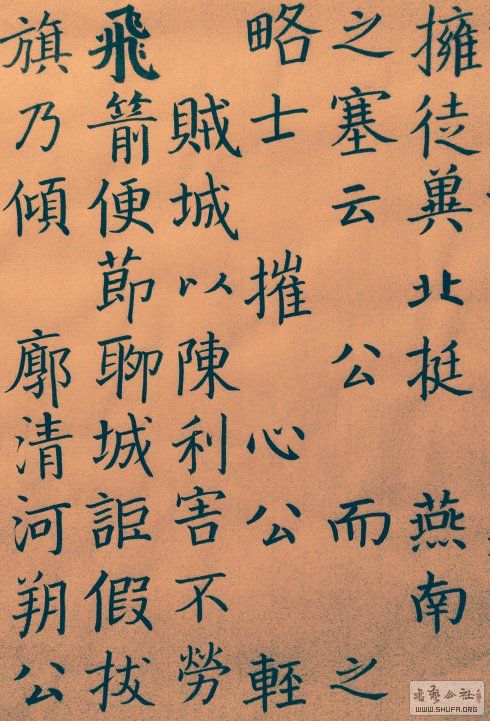 擁徒冀北挺燕南
之塞云公而之
略士摧心公輕
賊城以陳利害不勞
飛箭便莭聊城詎假拔
旗乃傾廓清河朔公
WWW.SHUFA.ORG